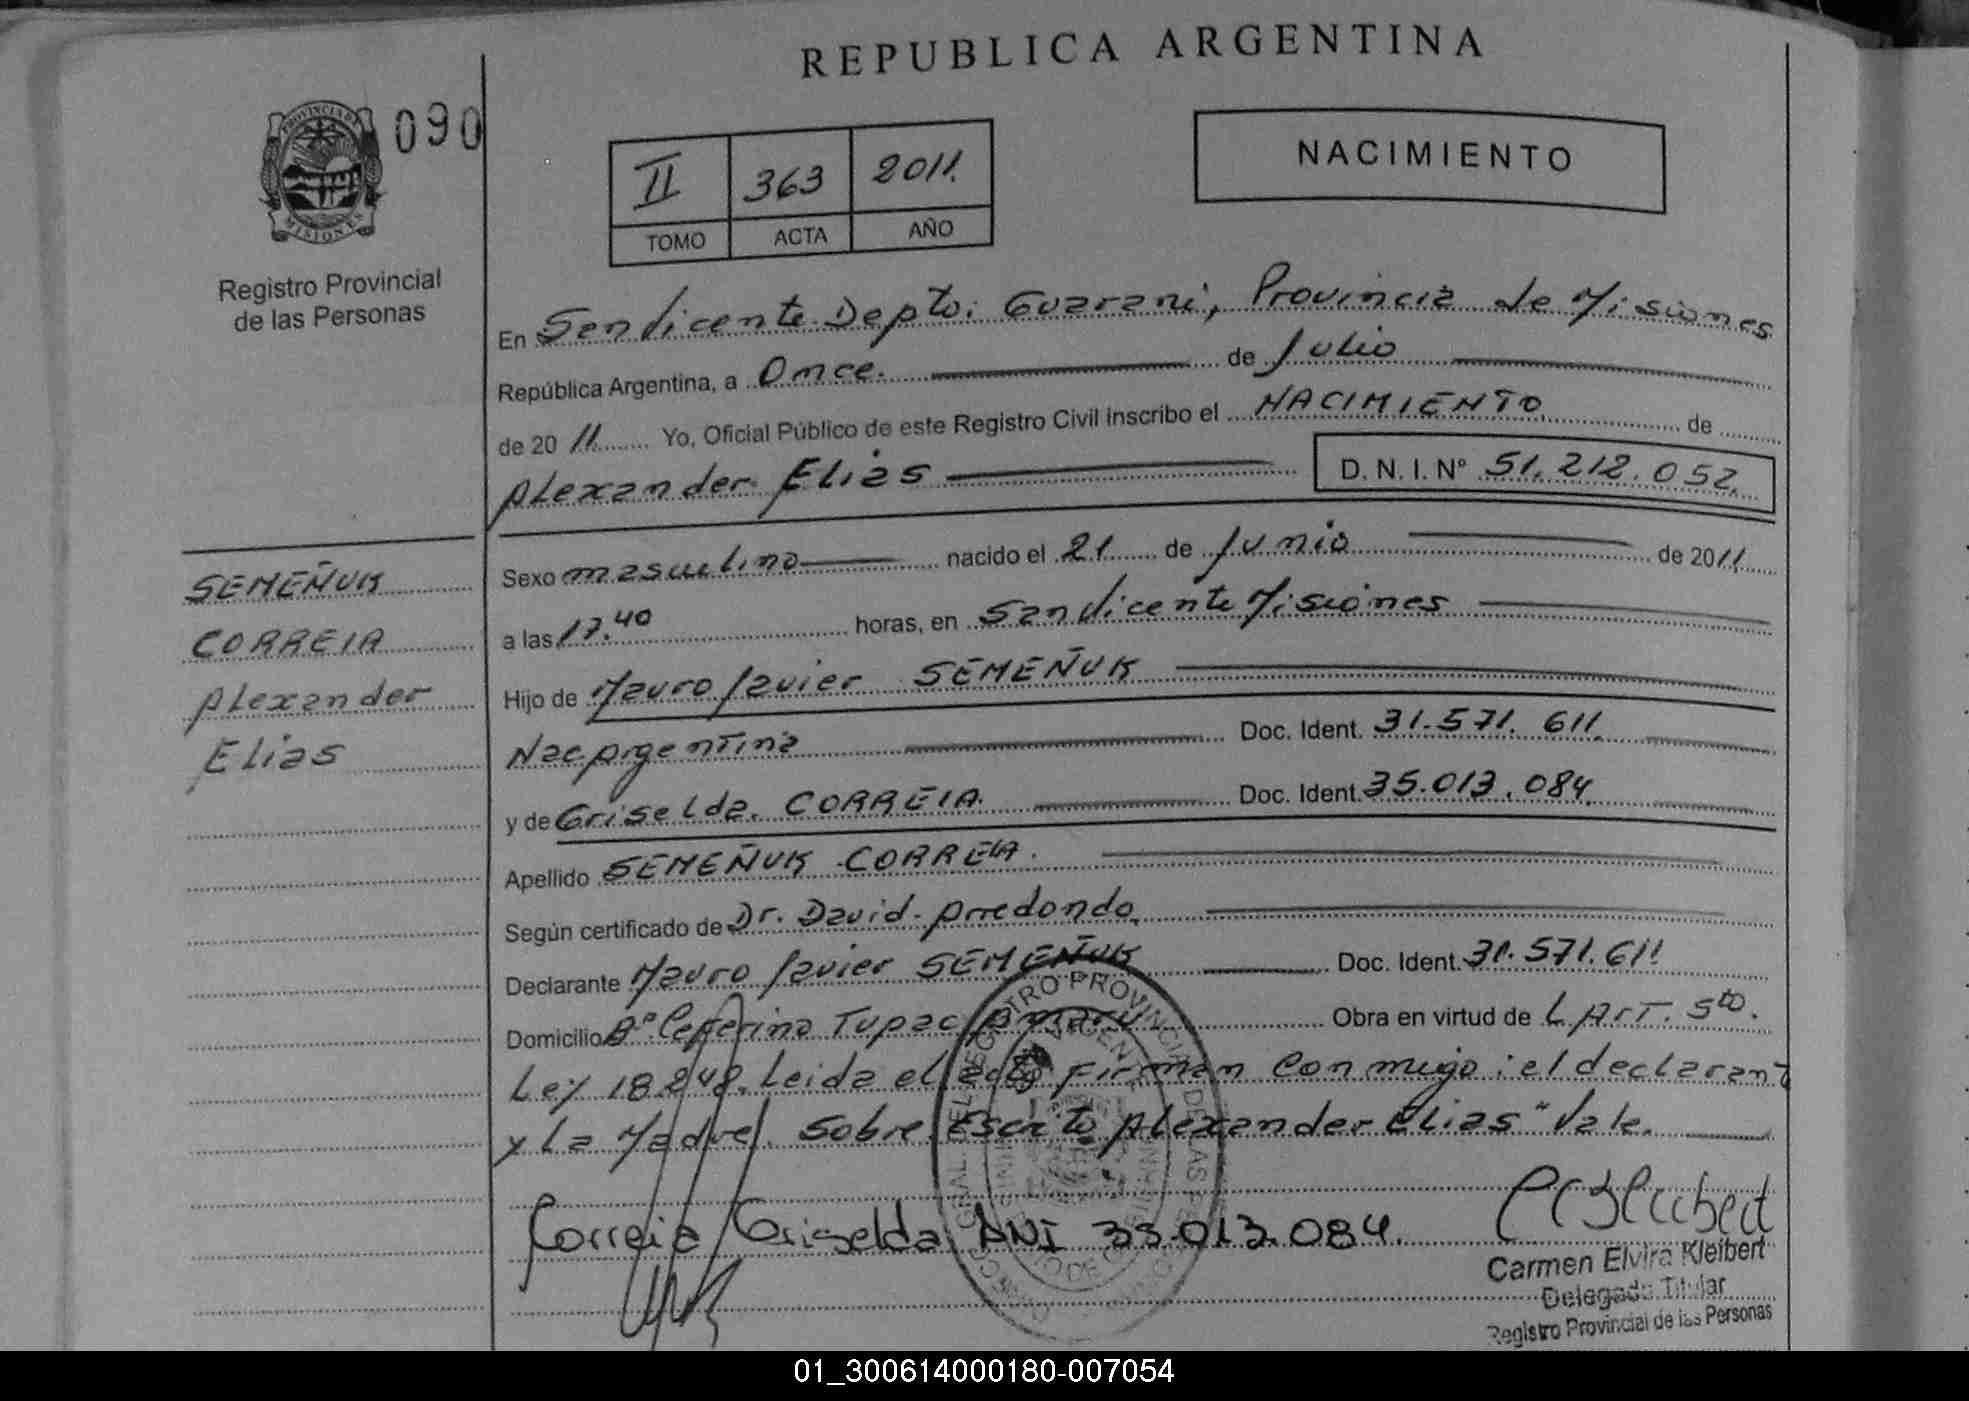 REPUBLICA ARGENTINA
PROVINCIA DE
MISIONES
090
II 363 2011.
TOMO ACTA AÑO
NACIMIENTO
Registro Provincial
de las Personas
En San Vicente Depto: Guarani, Provincia de Misiones
República Argentina, a Once. de Julio
de 20 11 Yo, Oficial Público de este Registro Civil inscribo el NACIMIENTO de
Alexander Elias D. N. I. N° 51.212.052
SEMEÑUK
CORREIA
Alexander
Elias
Sexo masculino nacido el 21 de Junio de 2011
a las 17.40 horas, en San Vicente Misiones
Hijo de Mauro Javier SEMEÑUK
Nac Argentina Doc. Ident. 31.571.611.
y de Griselda CORREIA Doc. Ident. 35.013.084
Apellido SEMEÑUK CORREIA.
Según certificado de Dr. David Arredondo
Declarante Mauro Javier SEMEÑUK Doc. Ident. 31.571.611
Domicilio Bº Ceferino Tupac Amaru Obra en virtud de L Art. 5to.
Ley 18.248. Leida el acta firman conmigo: el declarant
y La Madre. Sobre Escrito Alexander Elias" Vale.
Correia Griselda DNI 35.013.084.
Carmen Elvira Kleibert
Delegada Titular
Registro Provincial de las Personas
01_300614000180-007054